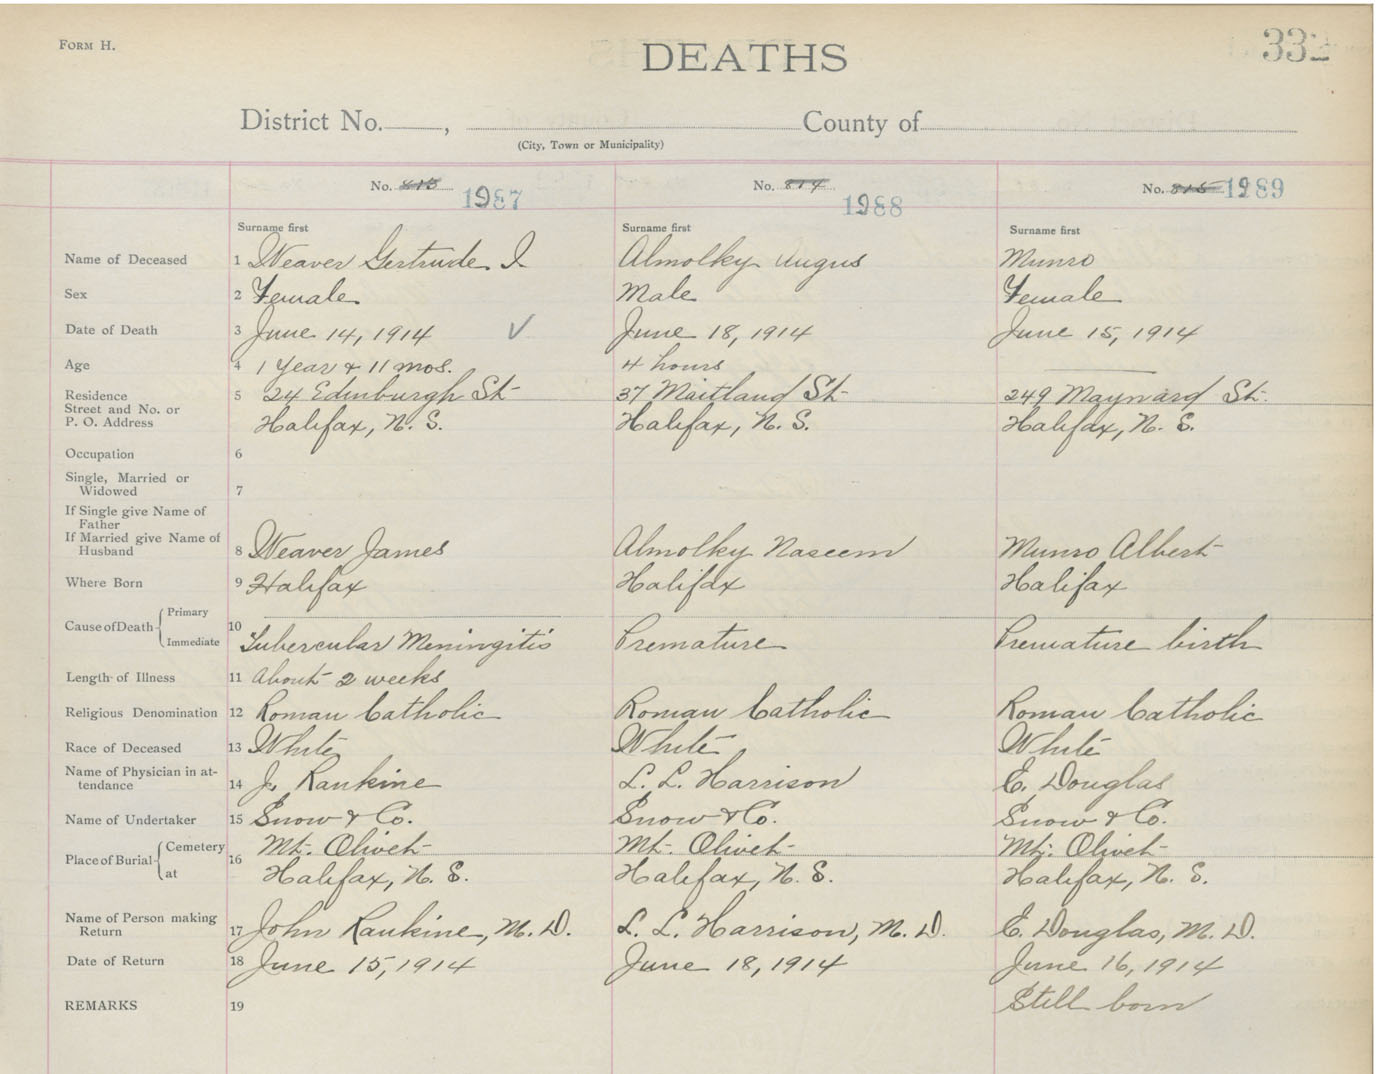 FORM H.
DEATHS
332
District No. , County of
(City, Town or Municipality)
No. 813 1987
No. 814 1988
No. 815 1989
Surname first
Surname first
Surname first
Name of Deceased 1 Weaver Gertrude I
Almolky Angus
Munro
Sex 2 Female
Male
Female
Date of Death 3 June 14, 1914 ✓
June 18, 1914
June 15, 1914
Age 4 1 Year & 11 mos.
4 hours
Residence
Street and No. or
P. O. Address
5 24 Edinburgh St
Halifax, N. S.
37 Maitland St
Halifax, N. S.
249 Maynard St.
Halifax, N. S.
Occupation 6
Single, Married or
Widowed 7
If Single give Name of
Father
If Married give Name of
Husband
8 Weaver James
Almolky Naseem
Munro Albert
Where Born 9 Halifax
Halifax
Halifax
Cause of Death Primary
Immediate
10 Tubercular Meningitis
Premature
Premature birth
Length of Illness 11 About 2 weeks
Religious Denomination 12 Roman Catholic
Roman Catholic
Roman Catholic
Race of Deceased 13 White
White
White
Name of Physician in at-
tendance
14 J. Rankine
L. L. Harrison
E. Douglas
Name of Undertaker 15 Snow & Co.
Snow & Co.
Snow & Co.
Place of Burial Cemetery
at
16 Mt. Olivet
Halifax, N. S.
Mt. Olivet
Halifax, N. S.
Mt. Olivet
Halifax, N. S.
Name of Person making
Return
17 John Rankine, M. D.
L. L. Harrison, M. D.
E. Douglas, M. D.
Date of Return 18 June 15, 1914
June 18, 1914
June 16, 1914
REMARKS 19
Still born